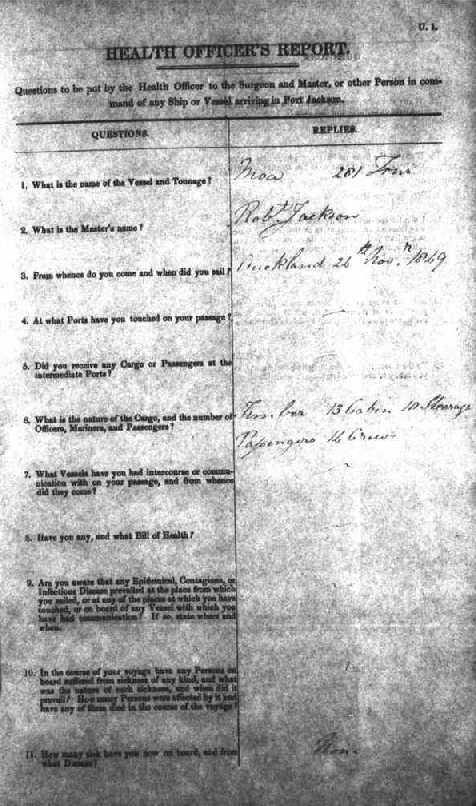 U. 1.
HEALTH OFFICER'S REPORT.
Questions to be put by the Health Officer to the Surgeon and Master, or other Person in com-
mand of any Ship or Vessel arriving in Port Jackson.
QUESTIONS.
REPLIES.
1. What is the name of the Vessel and Tonnage?
Moa 281 Tons
2. What is the Master's name?
Robt. Jackson
3. From whence do you come and when did you sail?
Auckland 26th Novr. 1849
4. At what Ports have you touched on your passage?
5. Did you receive any Cargo or Passengers at the
intermediate Ports?
6. What is the nature of the Cargo, and the number of
Officers, Mariners, and Passengers?
Timber 13 Cabin 18 Steerage
Passengers 14 Crew
7. What Vessels have you had intercourse or commu-
nication with on your passage, and from whence
did they come?
8. Have you any, and what Bill of Health?
9. Are you aware that any Epidemical, Contagious, or
Infectious Disease prevailed at the place from which
you sailed, or at any of the places at which you have
touched, or on board of any Vessel with which you
have had communication? If so, state where and
when.
10. In the course of your voyage have any Persons on
board suffered from sickness of any kind, and what
was the nature of such sickness, and when did it
prevail? How many Persons were affected by it and
have any of them died in the course of the voyage?
11. How many sick have you now on board, and from
what Disease?